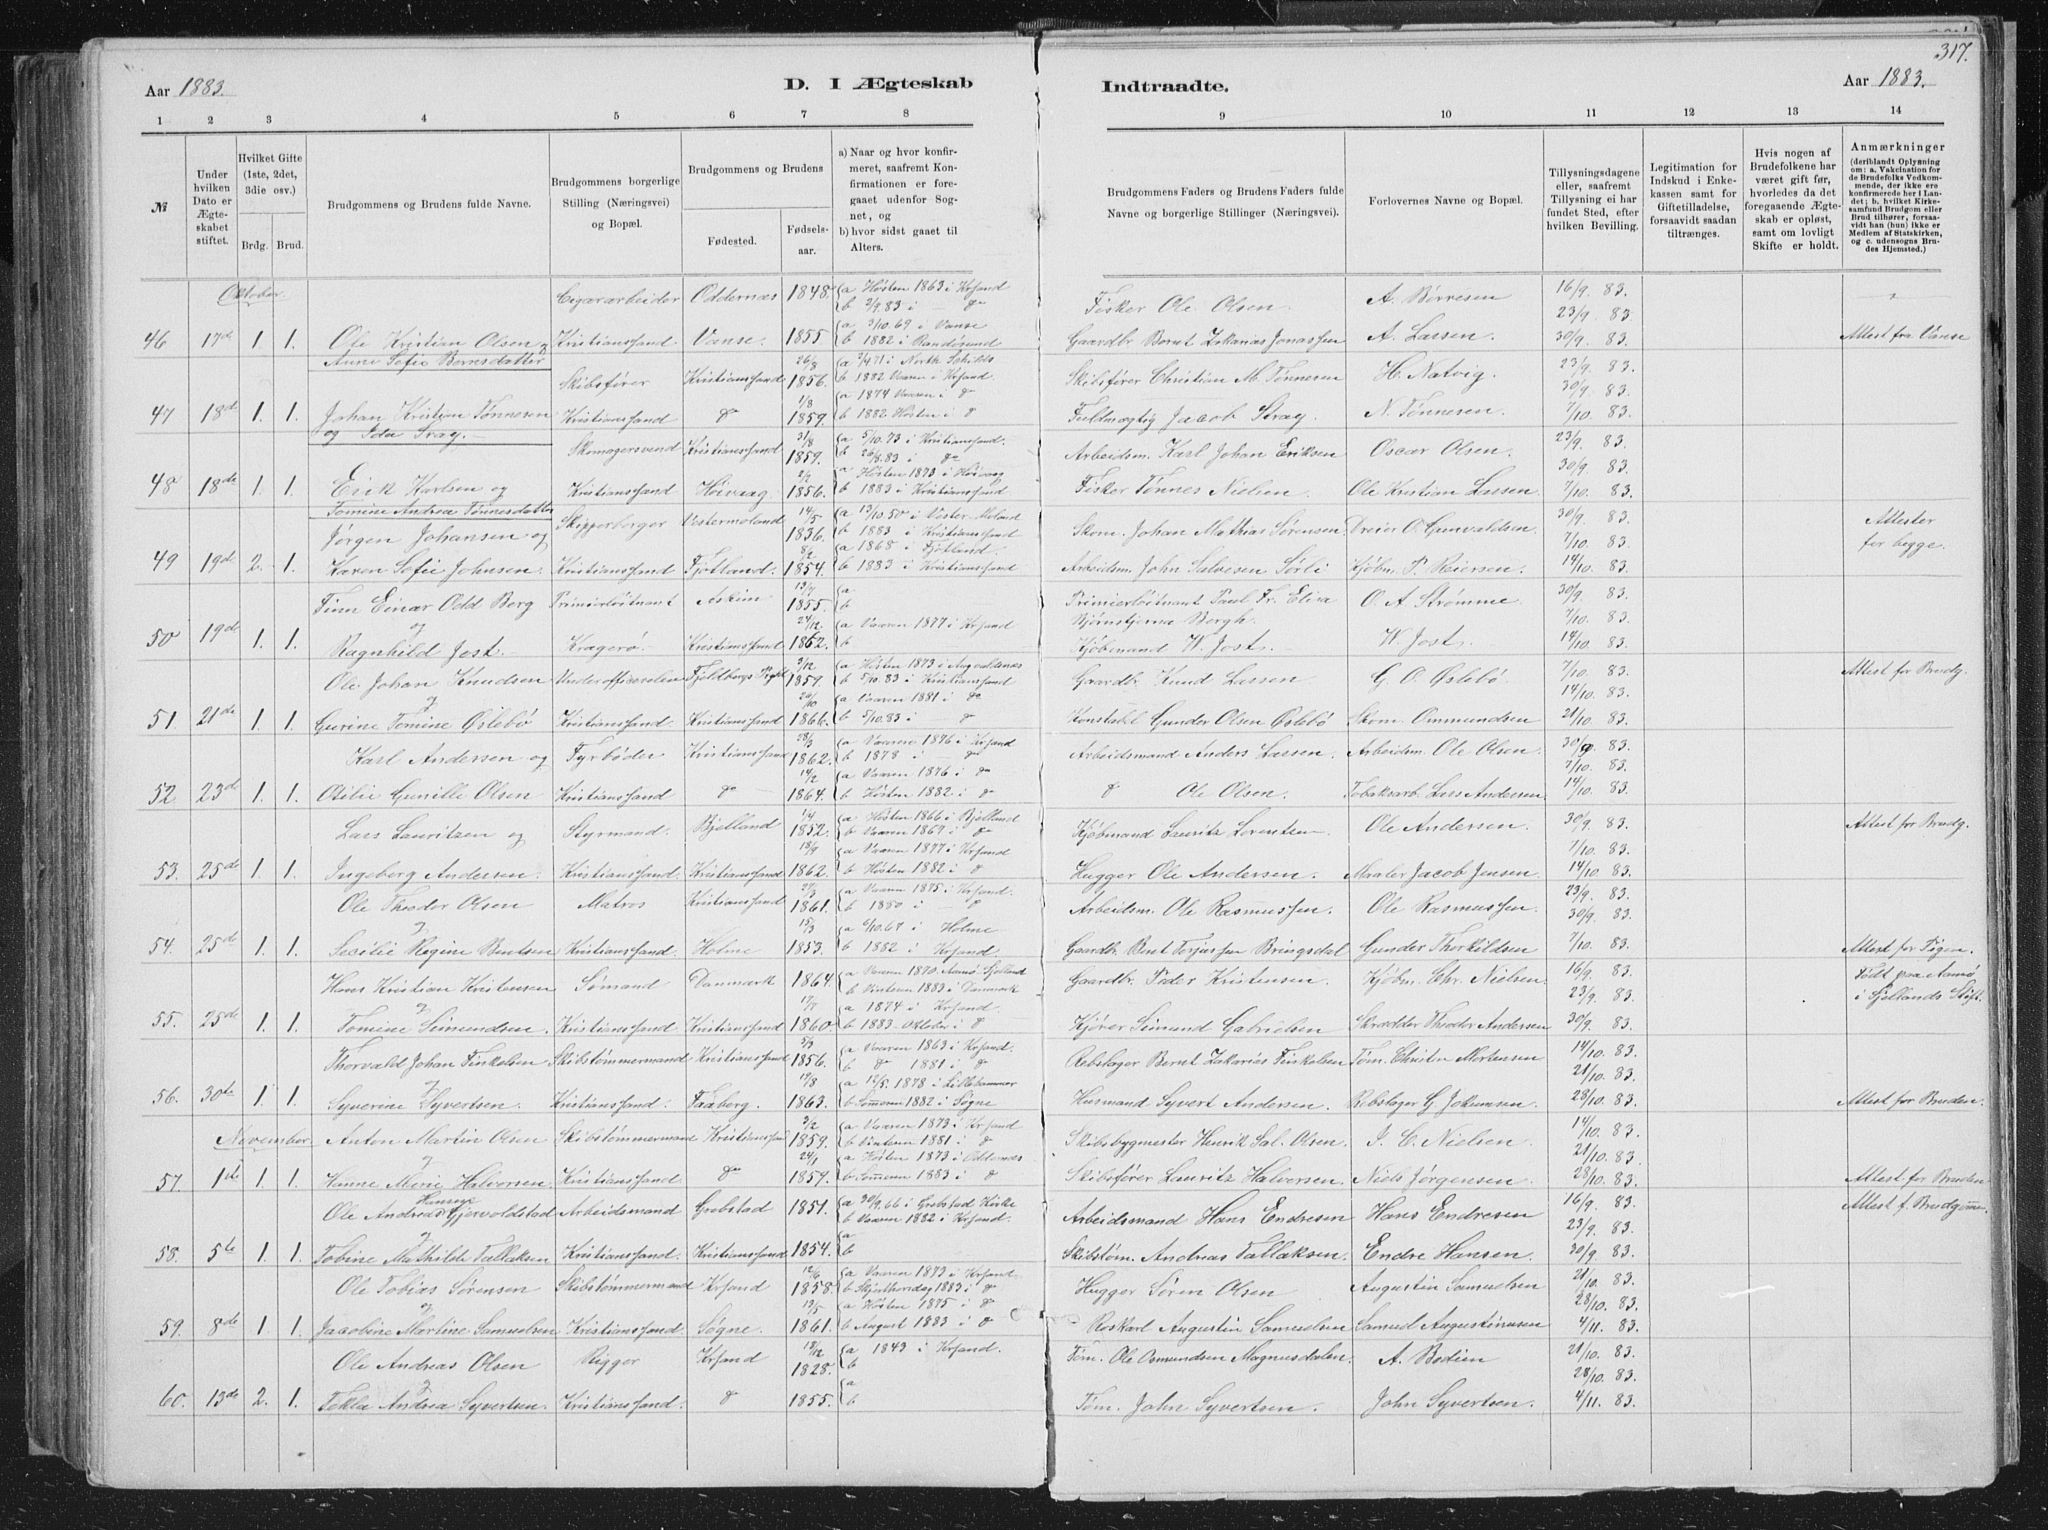 317.
Aar 1883.
D. I Ægteskab
Indtraadte.
Aar 1883.
1 2 3 4 5 6 7 8
9 10 11 12 13 14
№
Under hvilken Dato er Ægteskabet stiftet.
Hvilket Gifte (1ste, 2det, 3die osv.)
Brdg. Brud.
Brudgommens og Brudens fulde Navne.
Brudgommens borgerlige Stilling (Næringsvei) og Bopæl.
Brudgommens og Brudens
Fødested. Fødselsaar.
a) Naar og hvor konfirmeret, saafremt Konfirmationen er foregaaet udenfor Sognet, og
b) hvor sidst gaaet til Alters.
Brudgommens Faders og Brudens Faders fulde Navne og borgerlige Stillinger (Næringsvei).
Forlovernes Navne og Bopæl.
Tillysningsdagene eller, saafremt Tillysning ei har fundet Sted, efter hvilken Bevilling.
Legitimation for Indskud i Enkekassen samt for Giftetilladelse, forsaavidt saadan tiltrænges.
Hvis nogen af Brudefolkene har været gift før, hvorledes da det foregaaende Ægteskab er opløst, samt om lovligt Skifte er holdt.
Anmærkninger
(deriblandt Oplysning om: a. Vakcination for de Brudefolks Vedkommende, der ikke ere konfirmerede her i Landet; b. hvilket Kirkesamfund Brudgom eller Brud tilhører, forsaavidt han (hun) ikke er Medlem af Statskirken, og c. udensogns Brudes Hjemsted.)
Oktober.
Cigararbeider Oddernæs 1848. a Høsten 1863 i Krsand b 2/9.83 i — do Fisker Ole Olsen A. Børresen 16/9. 83. 23/9. 83.
46 17de 1. 1. Ole Kristian Olsen og Kristianssand Vanse. 1855 a 3/10.69 i Vanse b 1882 Randøsund Gaardbr. Bernt Zakarias Jonassen A. Lassen. 30/9. 83. Attest fra Vanse
Anne Sofie Berntsdatter
Skibsfører Kristianssand 26/8 1856. a 3/4 71 i North Schilds b 1882 Vaaren i Krsand. Skibsfører Christian M. Tønnesen H. Natvig. 23/9. 83. 30/9. 83.
47 18de 1. 1. Johan Kristian Tønnesen Kristianssand do 1/8 1859. a 1874 Vaaren i do b 1882 Høsten i do Fuldmægtig Jacob Stray. N. Tønnesen. 7/10. 83.
og Ida Stray.
Skomagersvend Kristianssand 31/8 1859. a 5/10.73 i Kristianssand. b 26/8.83 i do Arbeidsm. Karl Johan Eriksen Oscar Olsen. 23/9. 83. 30/9. 83.
48 18de 1. 1. Erik Karlsen og Kristianssand Høivaag. 2/2 1856. a Høsten 1873 i Høivaag b 1883 i Kristianssand Fisker Tønnes Nielsen. Ole Kristian Lassen 7/10. 83.
Tomine Andrea Tønnesdatter
Jørgen Johansen og Skipperborger Vestermoland 14/5 1836. a 13/10 50 i Vester Moland b 1883 i Kristianssand Skom. Johan Mathias Sørensen Dreier O. Gunvaldsen 30/9. 83. 7/10. 83. Attester for begge.
49 19de 2. 1. Karen Sofie Johnsen. Kristianssand Fjotland. 8/2 1854. a 1868 i Fjotland. b 1883 i Kristianssand Arbeidsm. John Salvesen Sørli Kjøbm. P. Reiersen. 14/10 83.
Finn Einar Odd Berg Primierløitnant Askim 13/7 1855. a b Primierløitnant Paul Fr. Elisa Bjørnstjerna Bergh. O. A. Strømme 30/9 83. 7/10. 83.
50 19de 1. 1. og Ragnhild Jost. Kragerø. Kristianssand 24/12 1862. a Vaaren 1877 i Krsand b Kjøbmand W. Jost. W. Jost. 14/10. 83.
Ole Johan Knudsen Underofficerelev Fjeldbergs Pgld. 3/12 1859. a Høsten 1873 i Augvaldsnæs b 5/10.83 i Kristianssand Gaardbr. Knud Lassen G. O. Øslebø 7/10. 83. 14/10. 83. Attest for Brudg.
51 21de 1. 1. og Gurine Tomine Øslebø Kristianssand Kristianssand 20/10 1866. a Vaaren 1881 i do b 5/10.83 i — do Konstabl Gunder Olsen Øslebø Skom. Ommundsen 21/10. 83.
Karl Andersen og Fyrbøder Kristianssand 28/3 1862. a Vaaren 1876 i Krsand b 1878 i do Arbeidsmand Anders Lassen Arbeidsm. Ole Olsen 30/9. 83. 7/10. 83.
52 23de 1. 1. Otilie Gunille Olsen Kristianssand do 14/2 1864. a Vaaren 1876 i do b Høsten 1882 i do do Ole Olsen. Tobaksarb. Lars Andersen 14/10. 83.
Lars Lauritzen og Styrmand. Bjelland 7/4 1852. a Høsten 1866 i Bjelland b Vaaren 1867 i do Kjøbmand Lauritz Lorentsen Ole Andersen. 30/9. 83. 7/10. 83. Attest for Brudg.
53. 25de 1. 1. Ingeborg Andersen. Kristianssand. Kristianssand 18/9 1862. a Vaaren 1877 i Krsand b Høsten 1882 i do Hugger Ole Andersen. Maaler Jacob Jensen. 14/10 83.
Ole Theodor Olsen Matros Kristianssand 27/3 1861. a Vaaren 1875 i Krsand. b 1880 i — do Arbeidsm. Ole Rasmussen. Ole Rasmussen. 23/9 83. 30/9. 83.
54. 25de 1. 1. og Secilie Regine Bentsen Kristianssand. Holme 15/3 1853. a 6/10.67 i Holme b 1882 i Krsand Gaardbr. Bent Torjussen Bringsdal Gunder Thorkildsen 7/10. 83. Attest for Pigen.
Hans Kristian Kristensen Sømand Danmark 1864. a Vaaren 1870. Aamø Sjelland b Vinteren 1883 i Danmark Gaardbr. Peder Kristensen Kjøbm. Chr. Nielsen. 16/9. 83. 23/9. 83. Født paa Aamø i Sjellands Stift.
55. 25de 1. 1. og Tomine Simundsen. Kristianssand. Kristianssand 17/7 1860. a 1874 i Krsand. b 1883 Oktober i do Kjører Simund Gabrielsen Skrædder Theodor Andersen 30/9. 83.
Thorvald Johan Finkelsen Skibstømmermand Kristianssand 5/9 1856. a Vaaren 1863 i Krsand. b do 1881 i do Rebslager Bernt Zakarias Finkelsen Tøm. Christen Mortensen 14/10. 83. 21/10. 83.
56. 30te 1. 1. og Syverine Syvertsen. Kristianssand. Faaberg. 17/8 1863. a 12/5. 1878 i Lillehammer b Sommeren 1882 i Søgne Husmand Syvert Andersen. Rebslager G. Jokumsen 28/10. 83. Attest for Bruden.
November. Anton Martin Olsen Skibstømmermand Kristianssand 3/2 1859. a Vaaren 1873 i Krsand b Vinteren 1881 i do Skibsbygmester Henrik Sal. Olsen. J. C. Nielsen. 14/10. 83. 21/10. 83.
57. 1ste 1. 1. og Hanne Marie Halvorsen. Kristianssand do 24/1 1859. a Høsten 1873 i Oddernæs b Sommeren 1883 i do Skibsfører Lauritz Halversen. Niels Jørgensen. 28/10. 83. Attest for Bruden
Ole Andreas Hansen Gjervoldstad Arbeidsmand Grebstad 1851. a 30/9.66 i Grebstad Kirke b Vaaren 1882 i Krsand. Arbeidsmand Hans Endresen Hans Endresen 16/9. 83. 23/9. 83. Attest f. Brudgom.
58. 5te 1. 1. og Tobine Mathilde Tallaksen Kristianssand. Kristianssand 1854. a b Skibstøm. Andreas Tallaksen. Endre Hansen. 30/9. 83.
Ole Tobias Sørensen Skibstømmermand Krsand 12/6 1858. a Vaaren 1873 i Krsand. b Skjærthorsdag 1883 i do Hugger Søren Olsen Augustin Samuelsen 21/10. 83. 28/10. 83.
59. 8de 1. 1. og Jacobine Martine Samuelsen Kristianssand Søgne. 13/5 1861. a Høsten 1875 i do b August 1883 i do Roskarl Augustin Samuelsen Samuel Augustinusen 4/11. 83.
Ole Andreas Olsen Rigger Krsand 18/12 1828. a 1843 i Krsand. b Tøm. Ole Osmundsen Magnusdalen. A. Bodien 21/10. 83. 28/10. 83.
60. 13de 2. 1. og Tekla Andrea Syvertsen. Kristianssand. do 1855. a b Tøm. John Syvertsen. John Syvertsen. 4/11. 83.